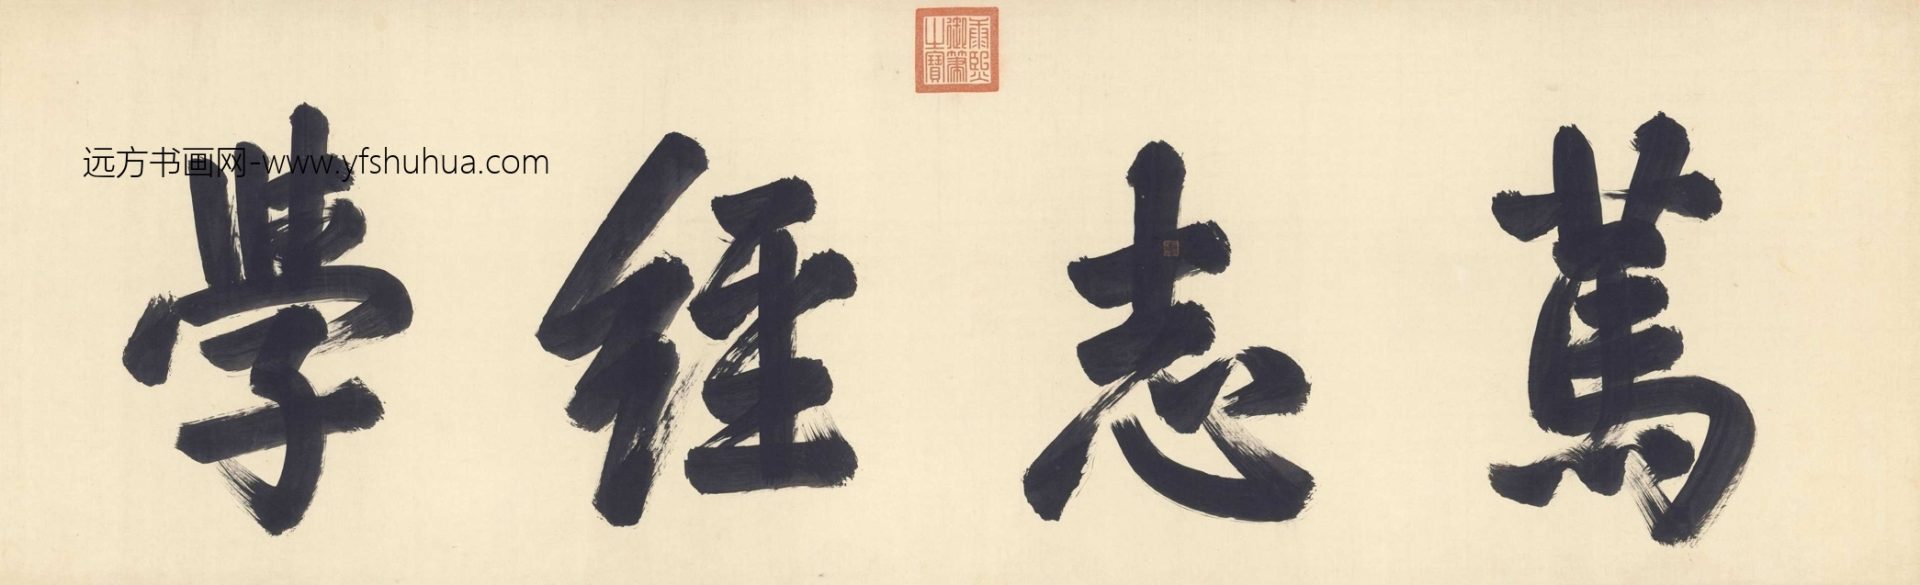 康熙
御筆
之寶
篤志經學
远方书画网-www.yfshuhua.com